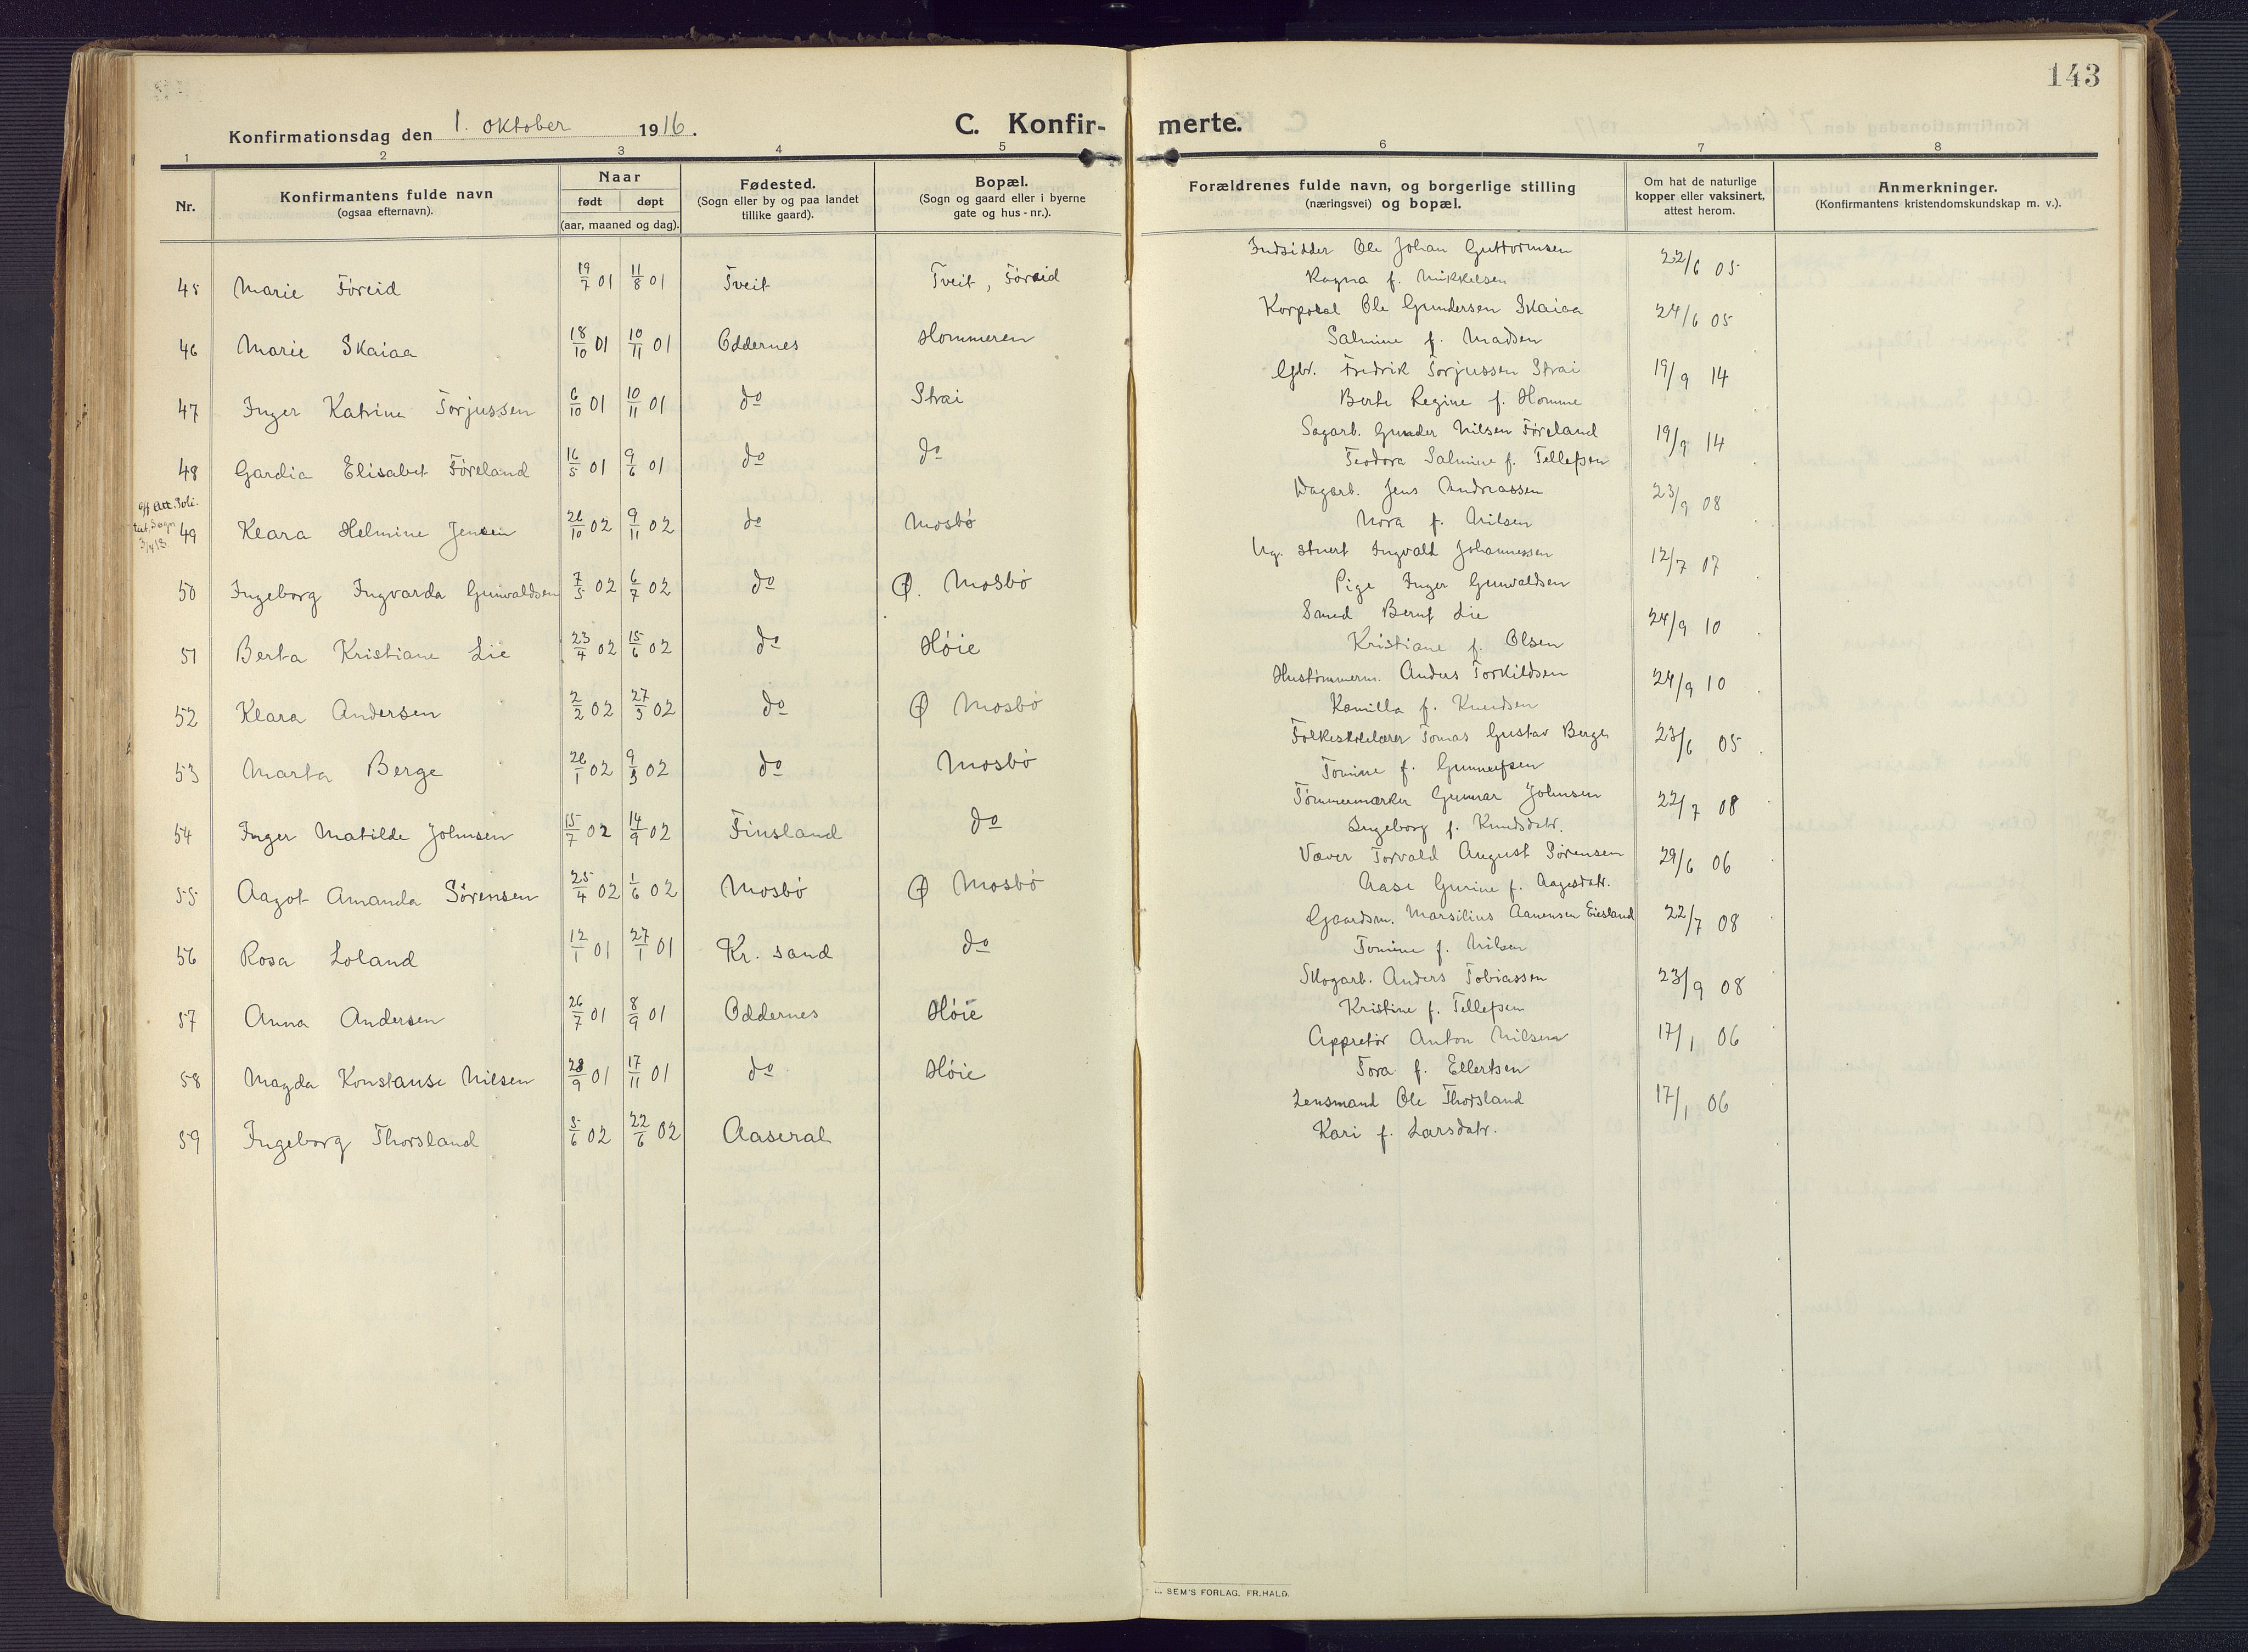 143
Konfirmationsdag den 1. oktober 1916.
C. Konfir- merte.
1 2 3 4 5 6 7 8
Nr. Konfirmantens fulde navn (ogsaa efternavn). Naar født døpt (aar, maaned og dag). Fødested. (Sogn eller by og paa landet tillike gaard). Bopæl. (Sogn og gaard eller i byerne gate og hus-nr.). Forældrenes fulde navn, og borgerlige stilling (næringsvei) og bopæl. Om hat de naturlige kopper eller vaksinert, attest herom. Anmerkninger. (Konfirmantens kristendomskundskap m. v.).
45 Marie Føreid 19/7 01 11/8 01 Tveit Tveit, Føreid Indsidder Ole Johan Guttormsen 22/6 05
Ragna f. Mikkelsen
46 Marie Skaiaa 18/10 01 10/11 01 Oddernes Hommeren Korporal Ole Gundersen Skaiaa 24/6 05
Salmine f. Madsen
47 Inger Katrine Torjussen 6/10 01 10/11 01 do Strai Gbr. Fredrik Torjussen Strai 19/9 14
Berte Regine f. Homme
48 Gardia Elisabet Føreland 16/5 01 9/6 01 do do Sagarb. Gunder Nilsen Føreland 19/9 14
Teodora Salmine f. Tellefsen
49 Klara Helmine Jensen 26/10 02 9/11 02 do Mosbø Dagarb. Jens Andreassen 23/9 08
Nora f. Nilsen
50 Ingeborg Ingvarda Gunvaldsen 7/5 02 6/7 02 do Ø. Mosbø Ug. stuert Ingvald Johannessen 12/7 07
Pige Inger Gunvaldsen
51 Berta Kristiane Lie 23/4 02 15/6 02 do Høie Smed Bernt Lie 24/9 10
Kristiane f. Olsen
52 Klara Andersen 2/2 02 27/3 02 do Ø Mosbø Hustømmerm. Anders Torkildsen 24/9 10
Kamilla f. Knudsen
53 Marta Berge 26/1 02 9/3 02 do Mosbø Folkeskolelærer Tomas Gustav Berge 23/6 05
Tomine f. Gunnufsen
54 Inger Matilde Johnsen 15/7 02 14/9 02 Finsland do Tømmermærker Gunnar Johnsen 22/7 08
Ingeborg f. Knudsdatr.
55 Aagot Amanda Sørensen 25/4 02 1/6 02 Mosbø Ø Mosbø Væver Torvald August Sørensen 29/6 06
Aase Gurine f. Aagesdatr.
56 Rosa Loland 12/1 01 27/1 01 Kr. sand do Gaardm. Marsilius Aanensen Eiesland 22/7 08
Tomine f. Nilsen
57 Anna Andersen 26/7 01 8/9 01 Oddernes Høie Skogarb. Anders Tobiassen 23/9 08
Kristine f. Tellefsen
58 Magda Konstanse Nilsen 28/9 01 17/11 01 do Høie Appretør Anton Nilsen 17/1 06
Tora f. Ellertsen
59 Ingeborg Thorsland 5/6 02 22/6 02 Aaseral Lensmand Ole Thorsland 17/1 06
Kari f. Larsdatr.
SEM'S FORLAG. FR.HALD.